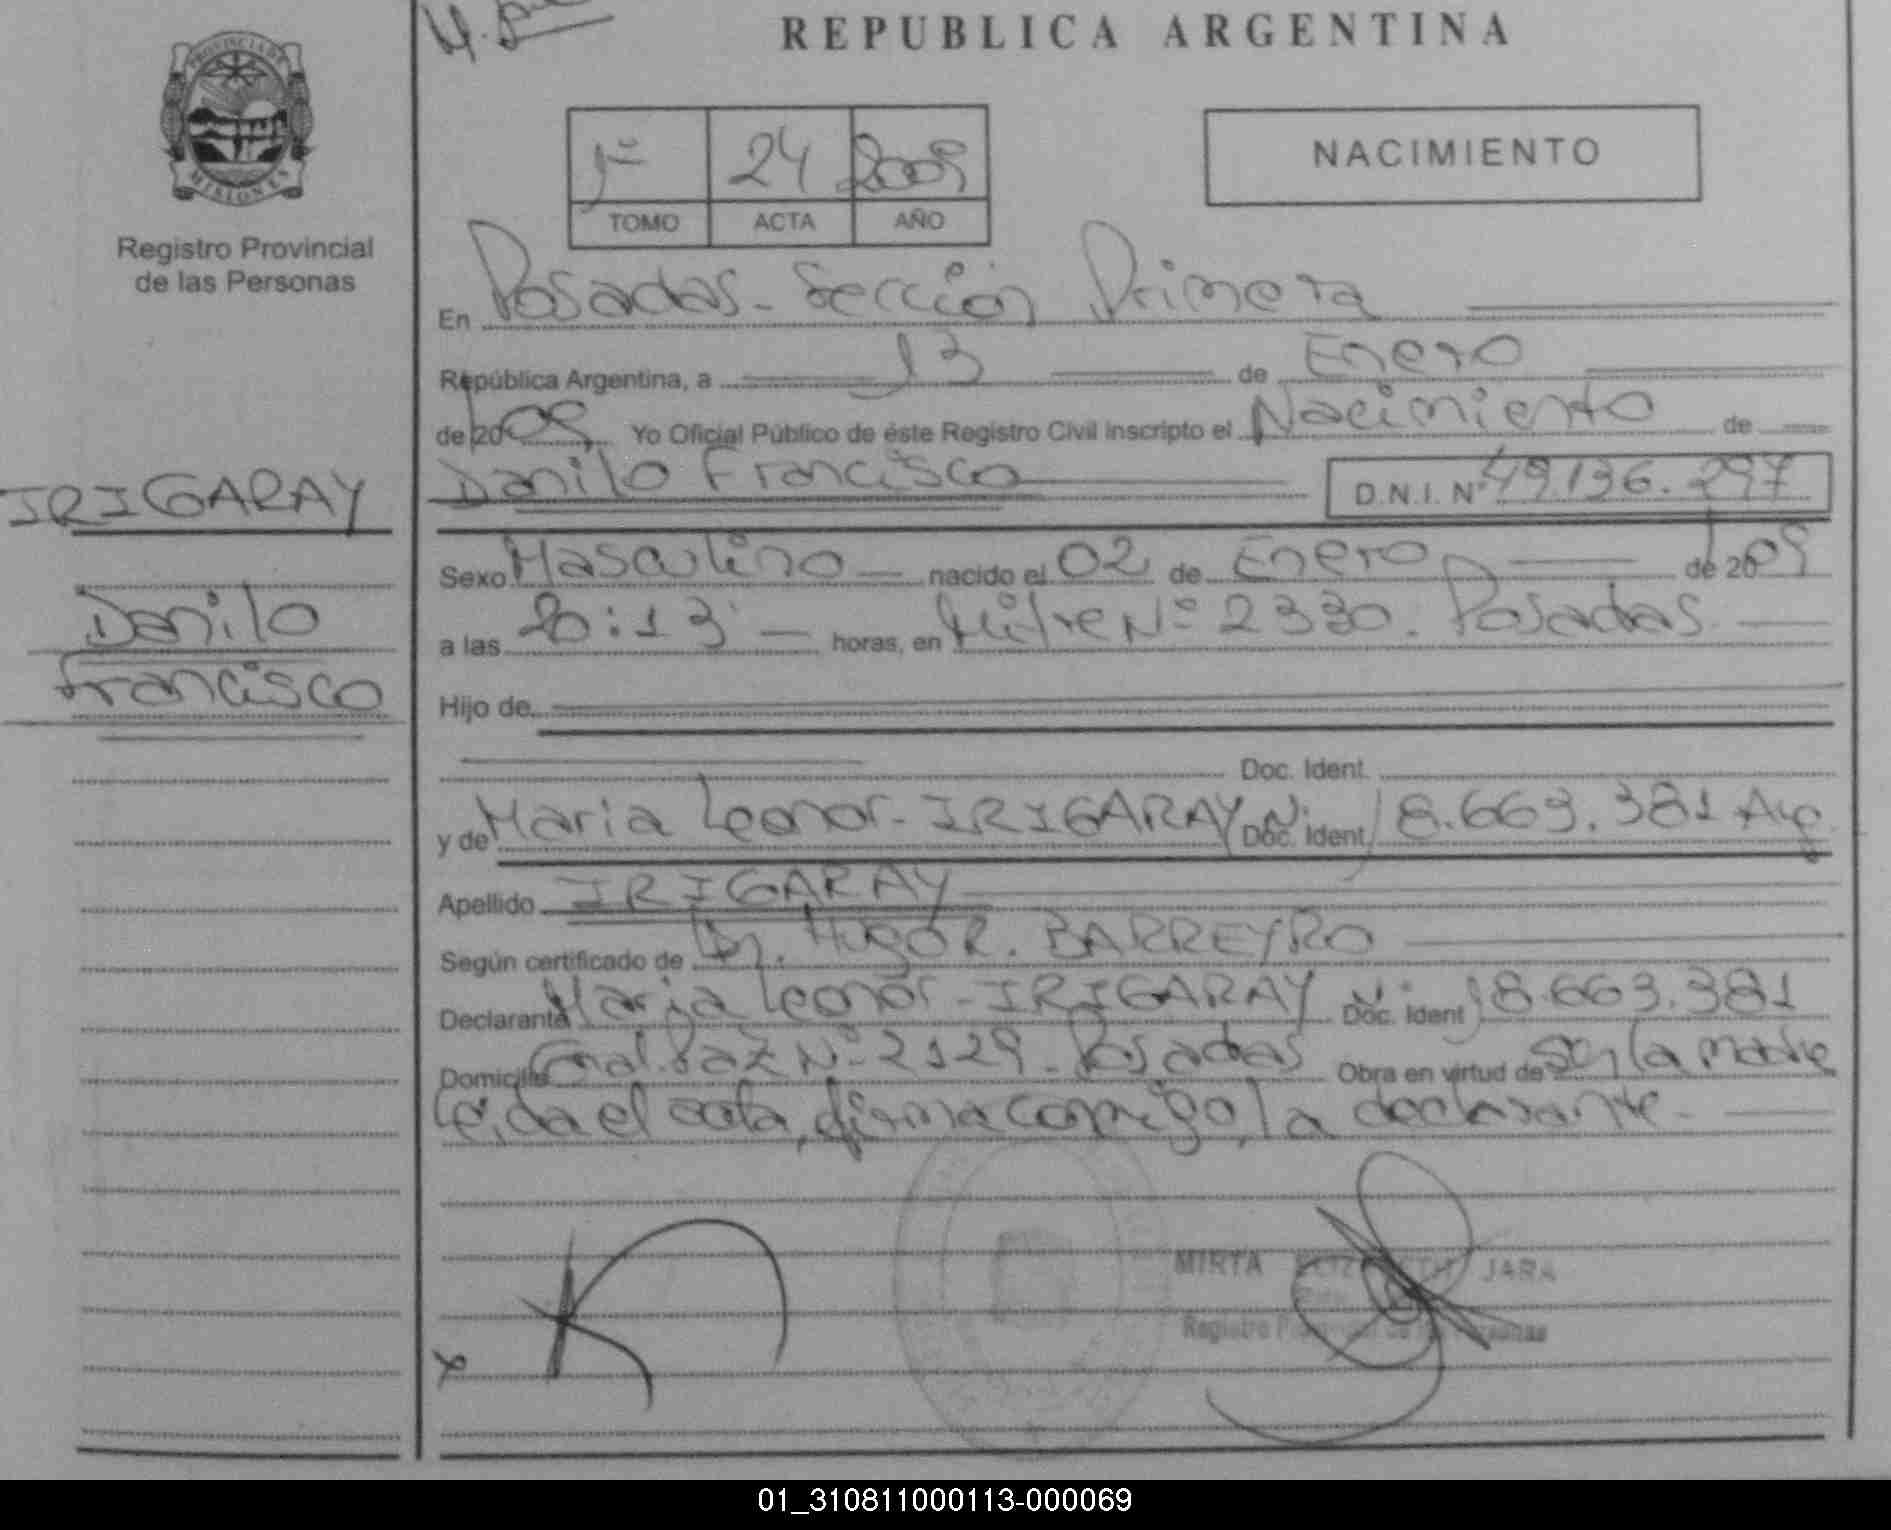 REPUBLICA ARGENTINA
PROVINCIA DE
MISIONES
Registro Provincial
de las Personas
1º 24 2009
TOMO ACTA AÑO
NACIMIENTO
En Posadas - Sección Primera
República Argentina, a 13 de Enero
de 2009 Yo Oficial Público de éste Registro Civil inscripto el Nacimiento de
IRIGARAY
Danilo Francisco D.N.I. Nº 49.136.297
Sexo Masculino nacido el 02 de Enero de 2009
Danilo
a las 20:13 horas, en Mitre Nº 2330. Posadas
Francisco
Hijo de
Doc. Ident.
y de Maria Leonor - IRIGARAY Doc. Ident. 18.663.381 Arg.
Apellido IRIGARAY
Según certificado de Dr. Hugo R. BARREYRO
Declarante Maria Leonor - IRIGARAY Doc. Ident 18.663.381
Domicilio Gral. Paz Nº 2129 - Posadas Obra en virtud de ser la madre
Leída el acta, firma conmigo, la declarante -
MIRTA JARA
Registro
01_310811000113-000069